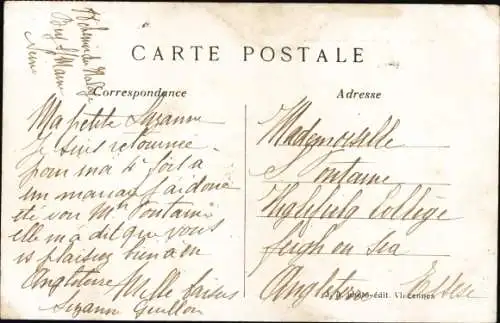 CARTE POSTALE
Correspondance
Ma petite Suzanne
Je suis retournée
pour ma 4e fois à
un mariage j'ai donc
été voir Mme Fontaine
elle m'a dit que vous
plaisiez bien en
Angleterre Mille baisers
Suzanne Guillou
Adresse
Mademoiselle
S Fontaine
Highfield Collège
Leigh on Sea
Angleterre Essex
édit. Vincennes